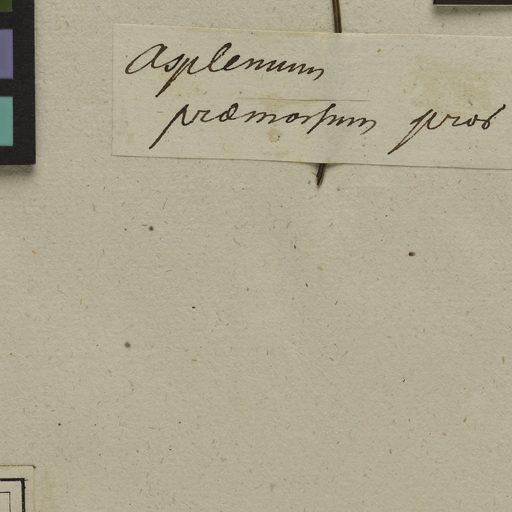 Asplenium
præmorsum prod